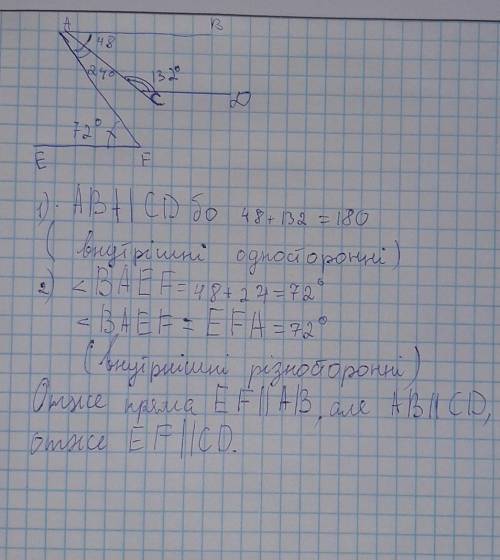 A
B
48
24°
132°
C
D
72°
E
F
1) ABA||CD бо 48+132=180
(внутрішні односторонні)
2) <BAEF=48+24=72°
<BAEF=EFA=72°
(внутрнішні різносторонні)
Отже пряма EF||AB, але AB||CD,
отже EF||CD.